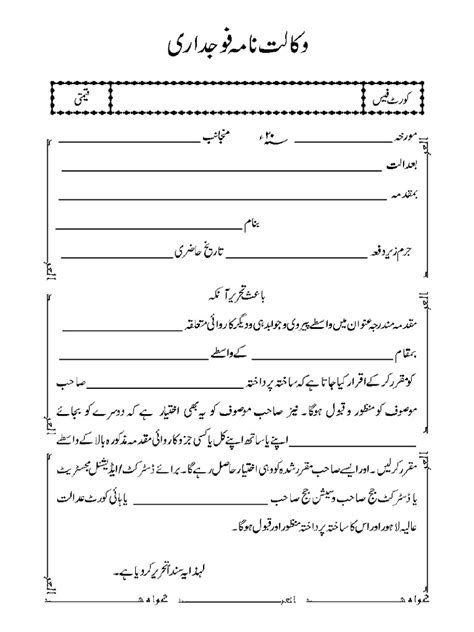 وکالت نامہ فوجداری
کورٹ فیس قیمتی
مورخہ ____________ ۲۰ء منجانب ____________
بعدالت ____________
بمقدمہ ____________
____________ بنام ____________
جرم زیر دفعہ ____________ تاریخ حاضری ____________
باعث تحریر آنکہ
مقدمہ مندرجہ عنوان میں واسطے پیروی و جوابدہی و دیگر کاروائی متعلقہ ____________
بمقام ____________ کے واسطے ____________
کو مقرر کر کے اقرار کیا جاتا ہے کہ ساختہ پرداختہ ____________ صاحب
موصوف کو منظور و قبول ہوگا۔ نیز صاحب موصوف کو یہ بھی اختیار ہے کہ دوسرے کو بجائے
____________ اپنے یا ساتھ اپنے کل یا کسی جزو کاروائی مقدمہ مذکورہ بالا کے واسطے
مقرر کرلیں۔ اور ایسے صاحب مقرر شدہ کو وہی اختیار حاصل رہے گا۔ برائے ڈسٹرکٹ/ایڈیشنل مجسٹریٹ
یا ڈسٹرکٹ جج صاحب و سیشن جج صاحب ____________ یا ہائی کورٹ عدالت
عالیہ لاہور اور اس کا ساختہ پرداختہ منظور اور قبول ہوگا۔
لہذا یہ سنداً تحریر کر دیا ہے۔
گواہ شد ____________ العبد ____________ گواہ شد